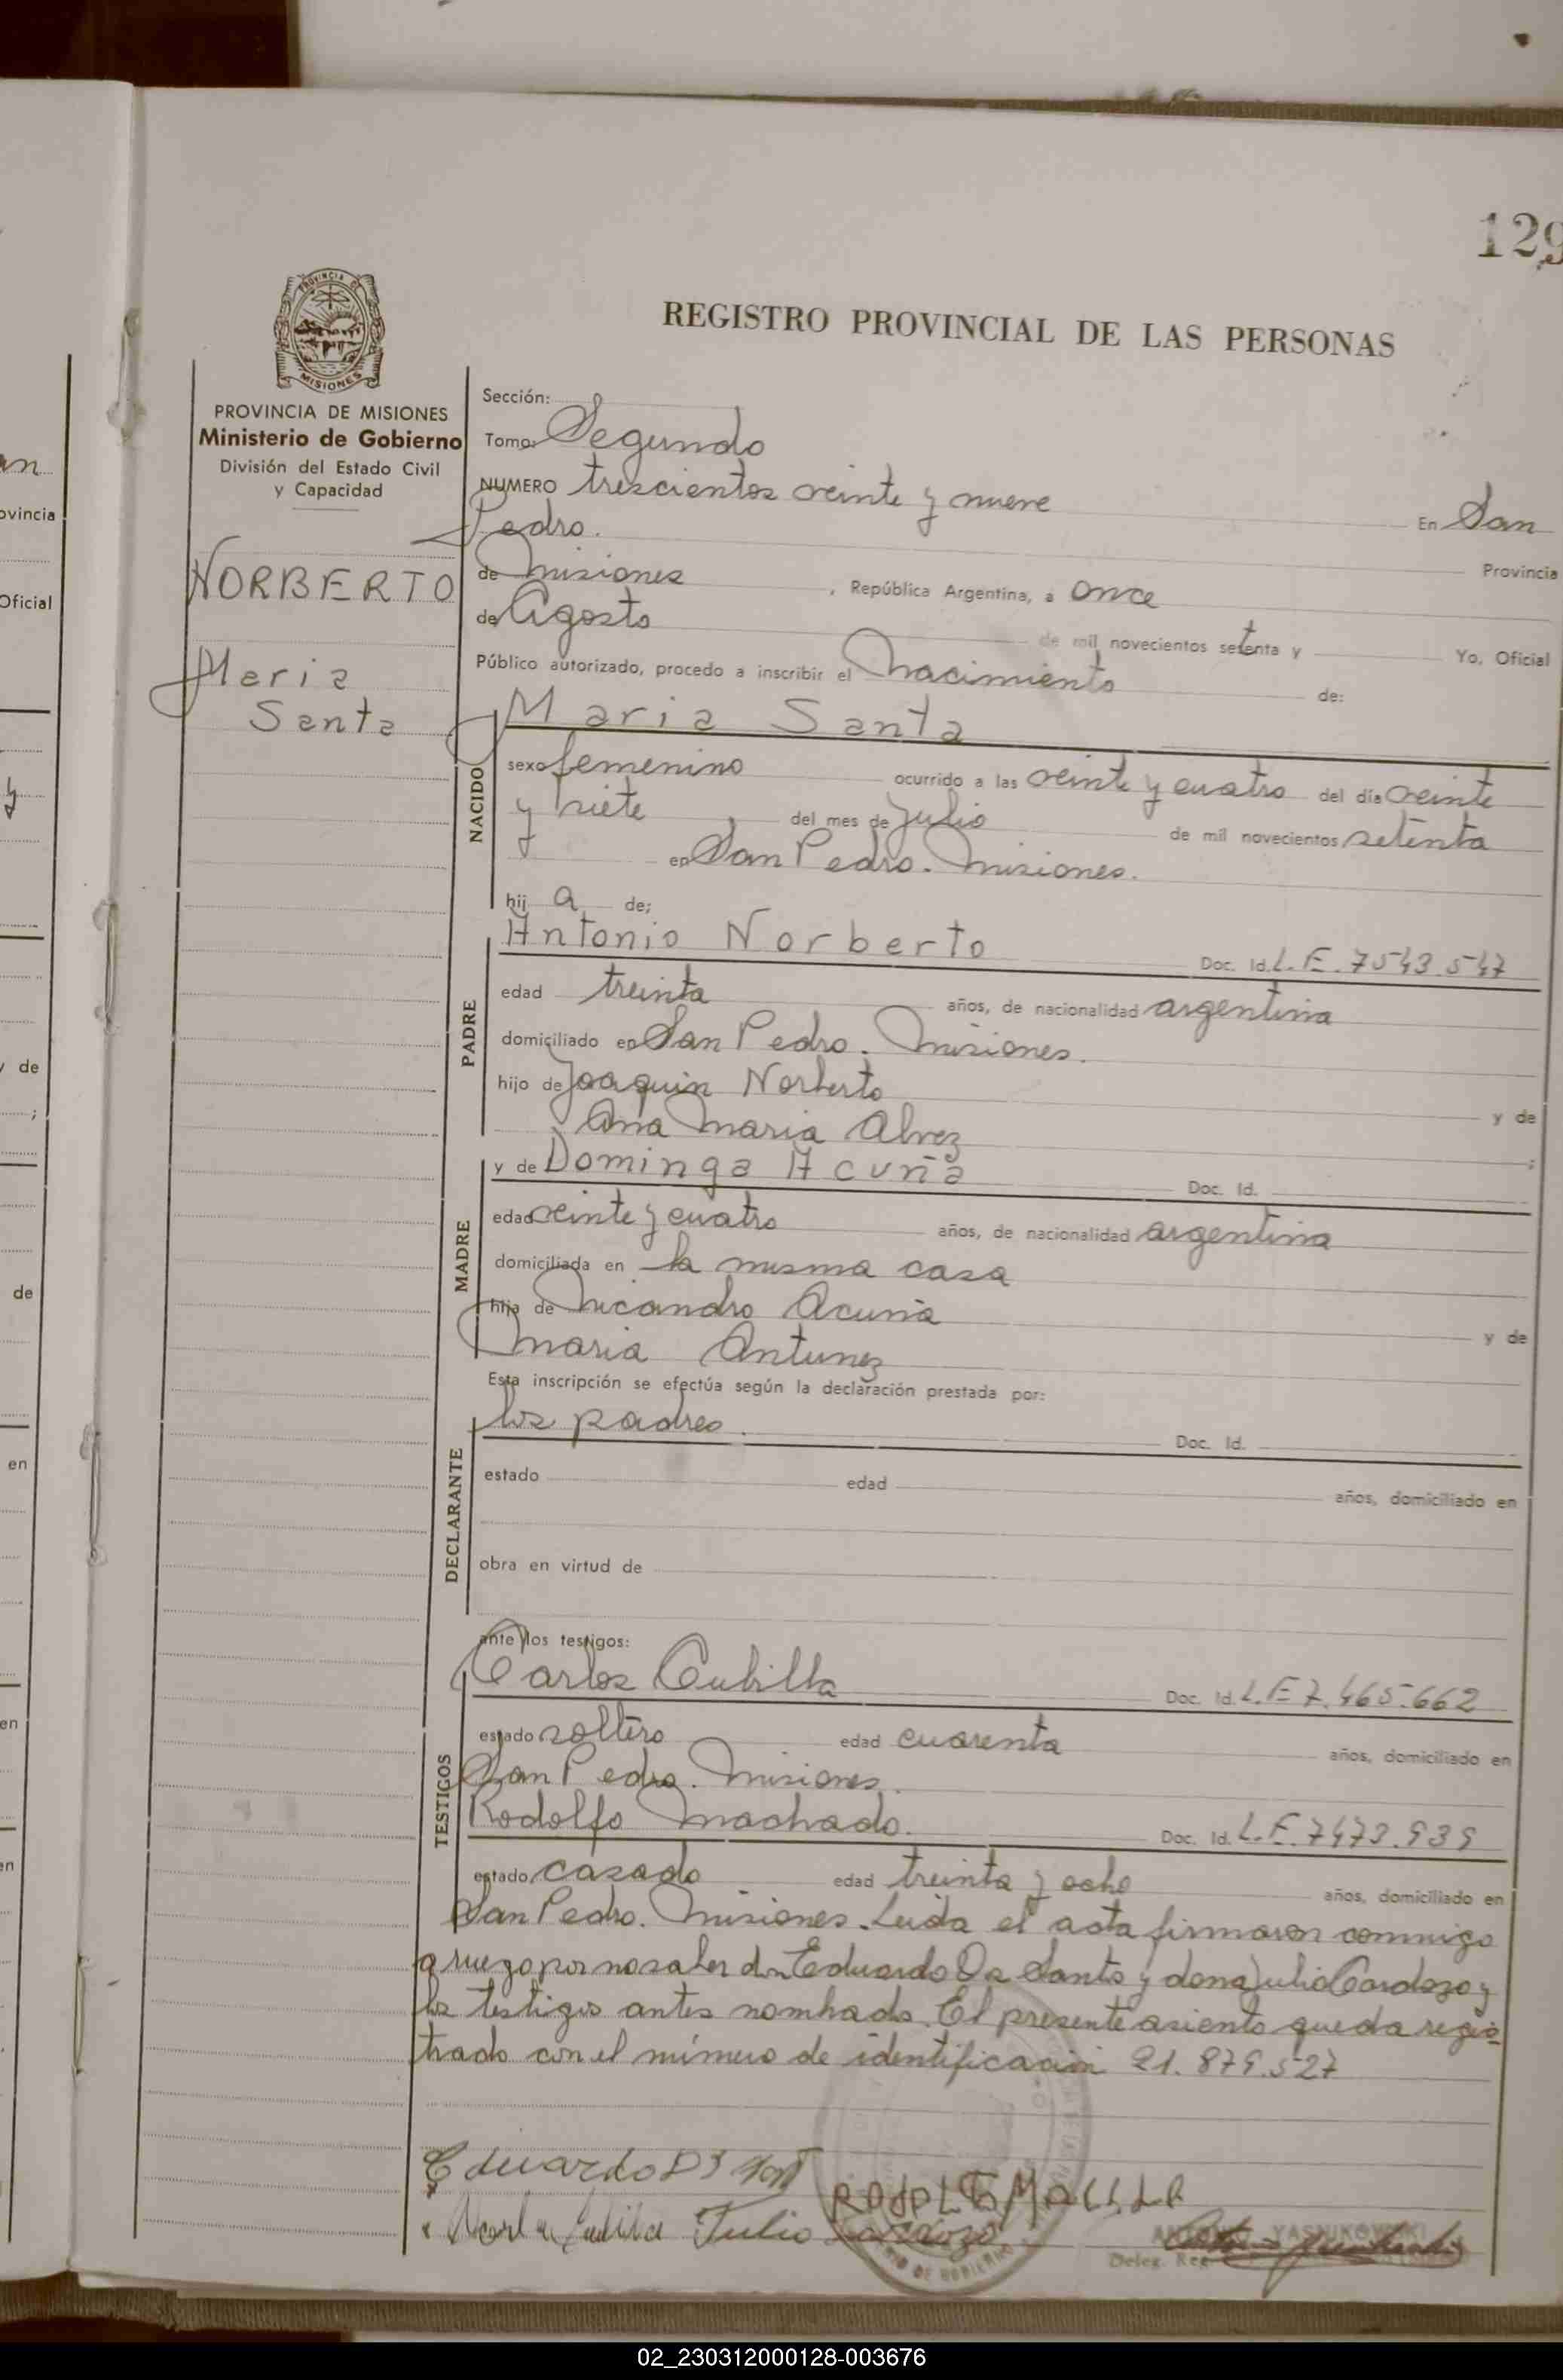 129
REGISTRO PROVINCIAL DE LAS PERSONAS
PROVINCIA DE
MISIONES
PROVINCIA DE MISIONES
Ministerio de Gobierno
División del Estado Civil
y Capacidad
NORBERTO
Maria
Santa
Sección:
Tomo: Segundo
NUMERO trescientos veinte y nueve En San
Pedro. Provincia
de Misiones, República Argentina, a once
de Agosto de mil novecientos setenta y Yo, Oficial
Público autorizado, procedo a inscribir el Nacimiento de:
Maria Santa
NACIDO
sexo femenino ocurrido a las veinte y cuatro del día veinte
y siete del mes de Julio de mil novecientos setenta
en San Pedro. Misiones.
hij a de;
PADRE
Antonio Norberto Doc. Id. L.E. 7543.547
edad treinta años, de nacionalidad argentina
domiciliado en San Pedro. Misiones.
hijo de Joaquin Norberto y de
Ana Maria Alvez ;
MADRE
y de Dominga Acuña Doc. Id.
edad veinte y cuatro años, de nacionalidad argentina
domiciliada en la misma casa
hija de Nicandro Acuña y de
Maria Antunez
Esta inscripción se efectúa según la declaración prestada por:
DECLARANTE
los padres. Doc. Id.
estado edad años, domiciliado en
obra en virtud de
ante los testigos:
TESTIGOS
Carlos Cubilla Doc. Id. L.E 7.465.662
estado soltero edad cuarenta años, domiciliado en
San Pedro. Misiones.
Rodolfo Machado. Doc. Id. L.E. 7473.939
estado casado edad treinta y ocho años, domiciliado en
San Pedro. Misiones. Leida el acta firmaron conmigo
a ruego por no saber don Eduardo Da Santo y dona Julio Cardozo y
los testigos antes nombrado. El presente asiento queda regis-
trado con el número de identificación 21.879.527
Eduardo
Julio Cardozo
ANTONIO YASNIKOWSKI
Deleg. Reg
an
ovincia
Oficial
y
y de
;
de
en
en
en
02_230312000128-003676